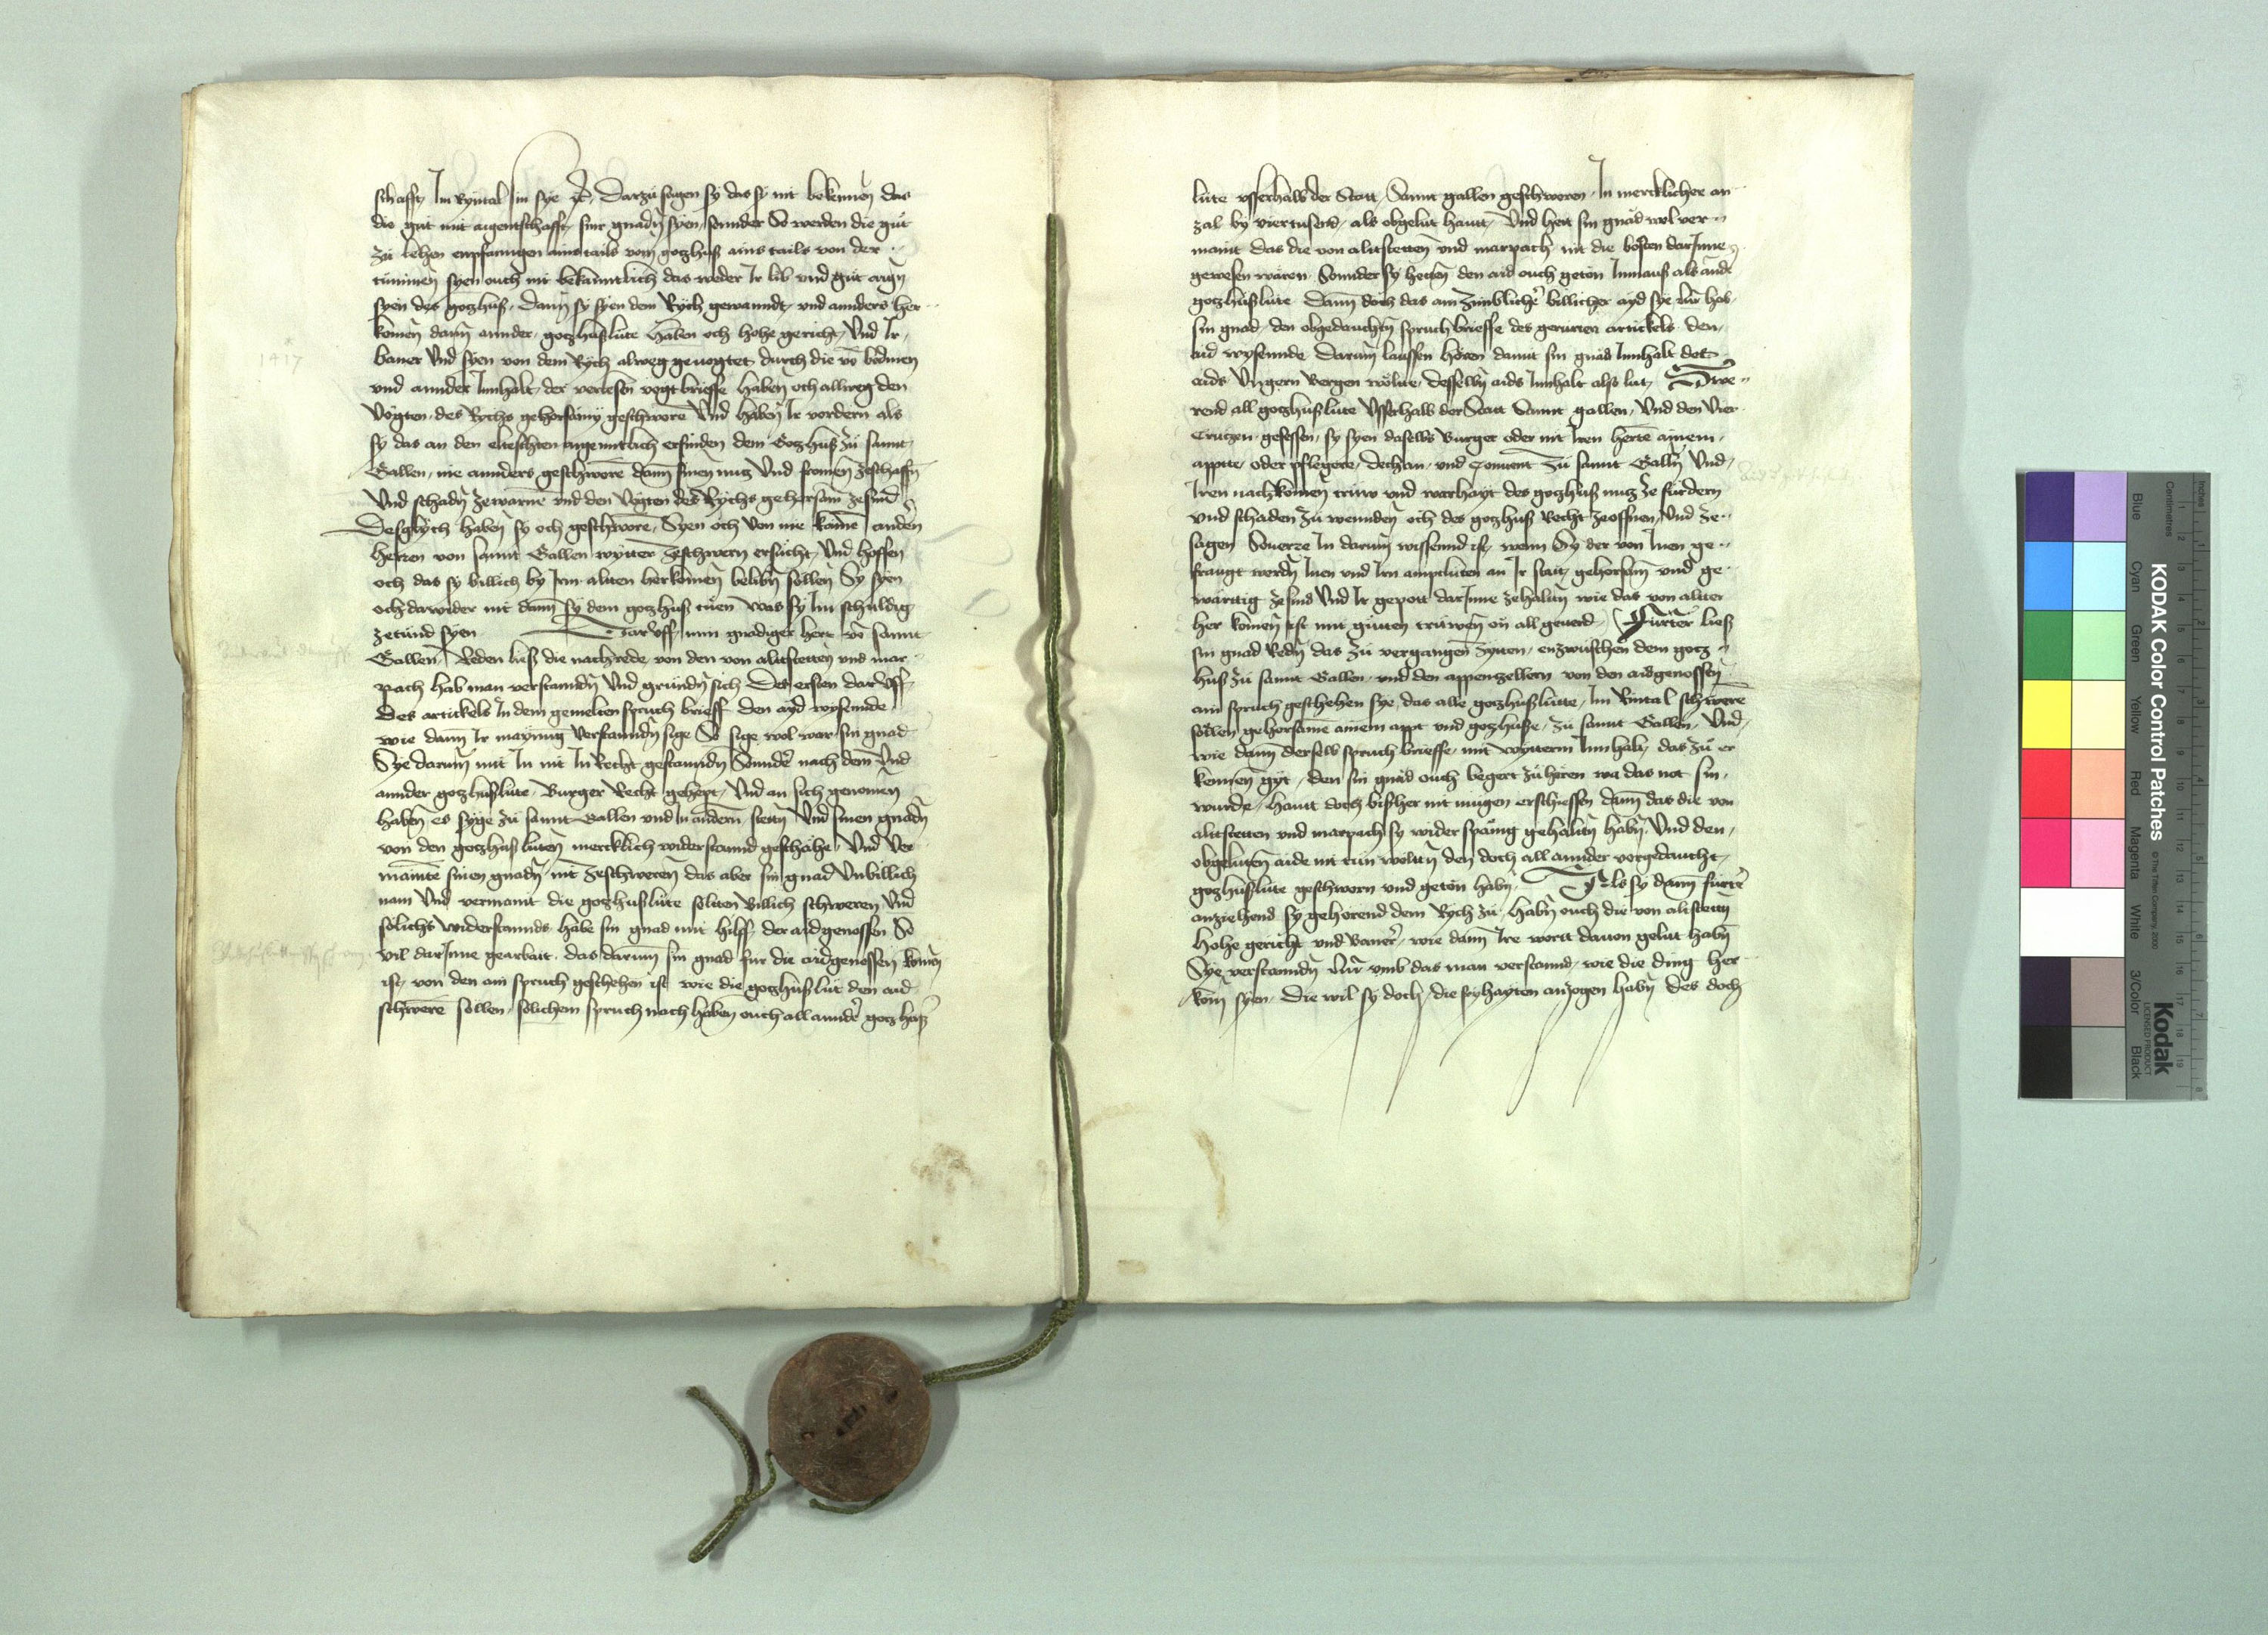 schafft Im Ryntal sin sye etc. Darzu sagen sy das sy nit bekennen das
die gut mit aigentschafft sinr gnaden syen sonnder So werden die gut
zu lehen enpfanngen ains tails vom gotzhuß ains tails von der
syen ouch nit bekanntlich das weder Ir lib vnd gut aigen
syen des gotzhuß, Dann sy syen dem Rych gewanndt, vnd annders her
komen dann annder gotzhußlute Haben och hohe gericht, Vnd Ir
baner Vnd syen von dem Rych alweg geuogtet durch die von bodmen
vnd annder Innhalt der verlesen vogt brieffe haben och allweg den
Vögten des Rychs gehorsamy geschworen Vnd haben Ir vordern als
sy das an den eltesten erfinden dem Gotzhuß zu sannt
Gallen, nie annders geschworen dann sinen nutz Vnd fromen zeschaffen
Vnd schaden zewarnen vnd den Vögten des Rychs gehorsam zesind
Desglych haben sy och geschworen, Syen och Von nie komen andern
herren von sannt Gallen wytter zeschwern ersucht, Vnd hoffen
och das sy billich by Irm alten herkomen beliben söllen Sy syen
och dawider nit dann sy dem gotzhuß tuen was sy Im schuldig
zetund syen Daruff min gnadiger herr von sannt
Gallen Reden ließ die nachrede von den von altstetten vnd mar
pach hab man verstannden Vnd grunden sich Des ersten daruff
Des artickels In dem gemelten spruch brieff den ayd wysennde
wie dann Ir maynung Verstannden sige So sige wol war sin gnad
Sye darumm mit In nit In Recht gestannden Sonnder nach dem Vnd
annder gotzhußlute, Burger Recht gehept, Vnd an sich genomen
haben es syge zu sannt Gallen vnd In andern stetten Vnd sinen gnaden
von den gotzhuß luten mercklich widerstannd geschähe, Vnd Ver
mainten sinen gnaden nit zeschweren das aber sin gnad Vnbillich
nam Vnd vermaint die gotzhußlute sölten Billich schweren Vnd
sölichs widerstannds habe sin gnad mit hilff der aidgenossen So
vil darInne gearbait, das darumm sin gnad für die aidgenossen komen
ist, von den ain spruch geschehen ist wie die gotzhußlüt den aid
schweren söllen, sölichem spruch nach haben ouch all annder gotzhuß
1417
lute vsserhalb der Statt Sannt gallen geschworen, In mercklicher an
zal by viertusend, als obgelut haut, Vnd hett sin gnäd wol ver
maint das die von altstetten vnd marpach nit die bösten darInne
gewesen wären Sonnder sy hetten den aid ouch geton Inmauß als annder
gotzhußlute Dann doch das ain zimblicher billicher ayd sye Nun hab
sin gnad den obgedauchten spruch brieffe des gerurten artickels den
aid wysennde Darumm laussen hören damit sin gnäd Innhalt des
aids Vngern Bergen wölte, desselben aids Innhalt also lut, Schwe
rend all gotzhußlute Vsserhalb der Statt Sannt gallen, Vnd den Vier
Crutzen gesessen, sy syen daselbs Burger oder nit Iren herren ainem
appte, oder pflegere, dechan, vnd Conuent zu sannt Gallen Vnd
Iren nachkomen trüw vnd warhayt des gotzhuß nutz ze fürdern
vnd schaden zu wennden och des gotzhuß Recht zeoffnen, Vnd ze
sagen Souerre In darumm wissennd ist, wann Sy der von Inen ge
fraugt werden Inen vnd Irn amptluten an Ir statt, gehorsam vnd ge
wärttig zesind Vnd Ir gepott darInne zehalten wie das von alter
her komen ist mit guten truwen on all geuerd Fürter ließ
sin gnad Reden das zu vergangen zyten, entzwuschen dem gotz
huß zu sannt Gallen, vnd den appenzellern von den aidgenossen
ain spruch geschehen sye, das alle gotzhußlute, Im Rintal schweren
söllen gehorsame ainem appt vnd gotzhuße, zu sannt Gallen, Vnd,
wie dann derselb spruch brieffe, mit wytterm Innhalt, das zu er
kennen gyt, den sin gnäd ouch begert zu hören wa das not sin,
wurde, haut doch bißher nit mugen erschiessen dann das die von
altstetten vnd marpach sy wider spänig gehalten haben Vnd den
obgeluten aide nit tun wolten den doch all annder vorgedaucht,
gotzhußlute geschworn vnd geton haben, Als sy dann fürter
anziehend sy gehörend dem Rych zu, haben ouch die von altstetten
hohe gericht vnd Baner, wie dann Ire wort dauon gelut haben
Sye verstannden Nur vmb das man verstannd, wie die ding her
kom syen, Die wil sy doch, die fryhayten anzogen haben Des doch
KODAK Color Control Patches
© The Tiffen Company, 2000
Kodak
LICENSED PRODUCT
Blue Cyan Green Yellow Red Magenta White 3/Color Black
Centimetres Inches